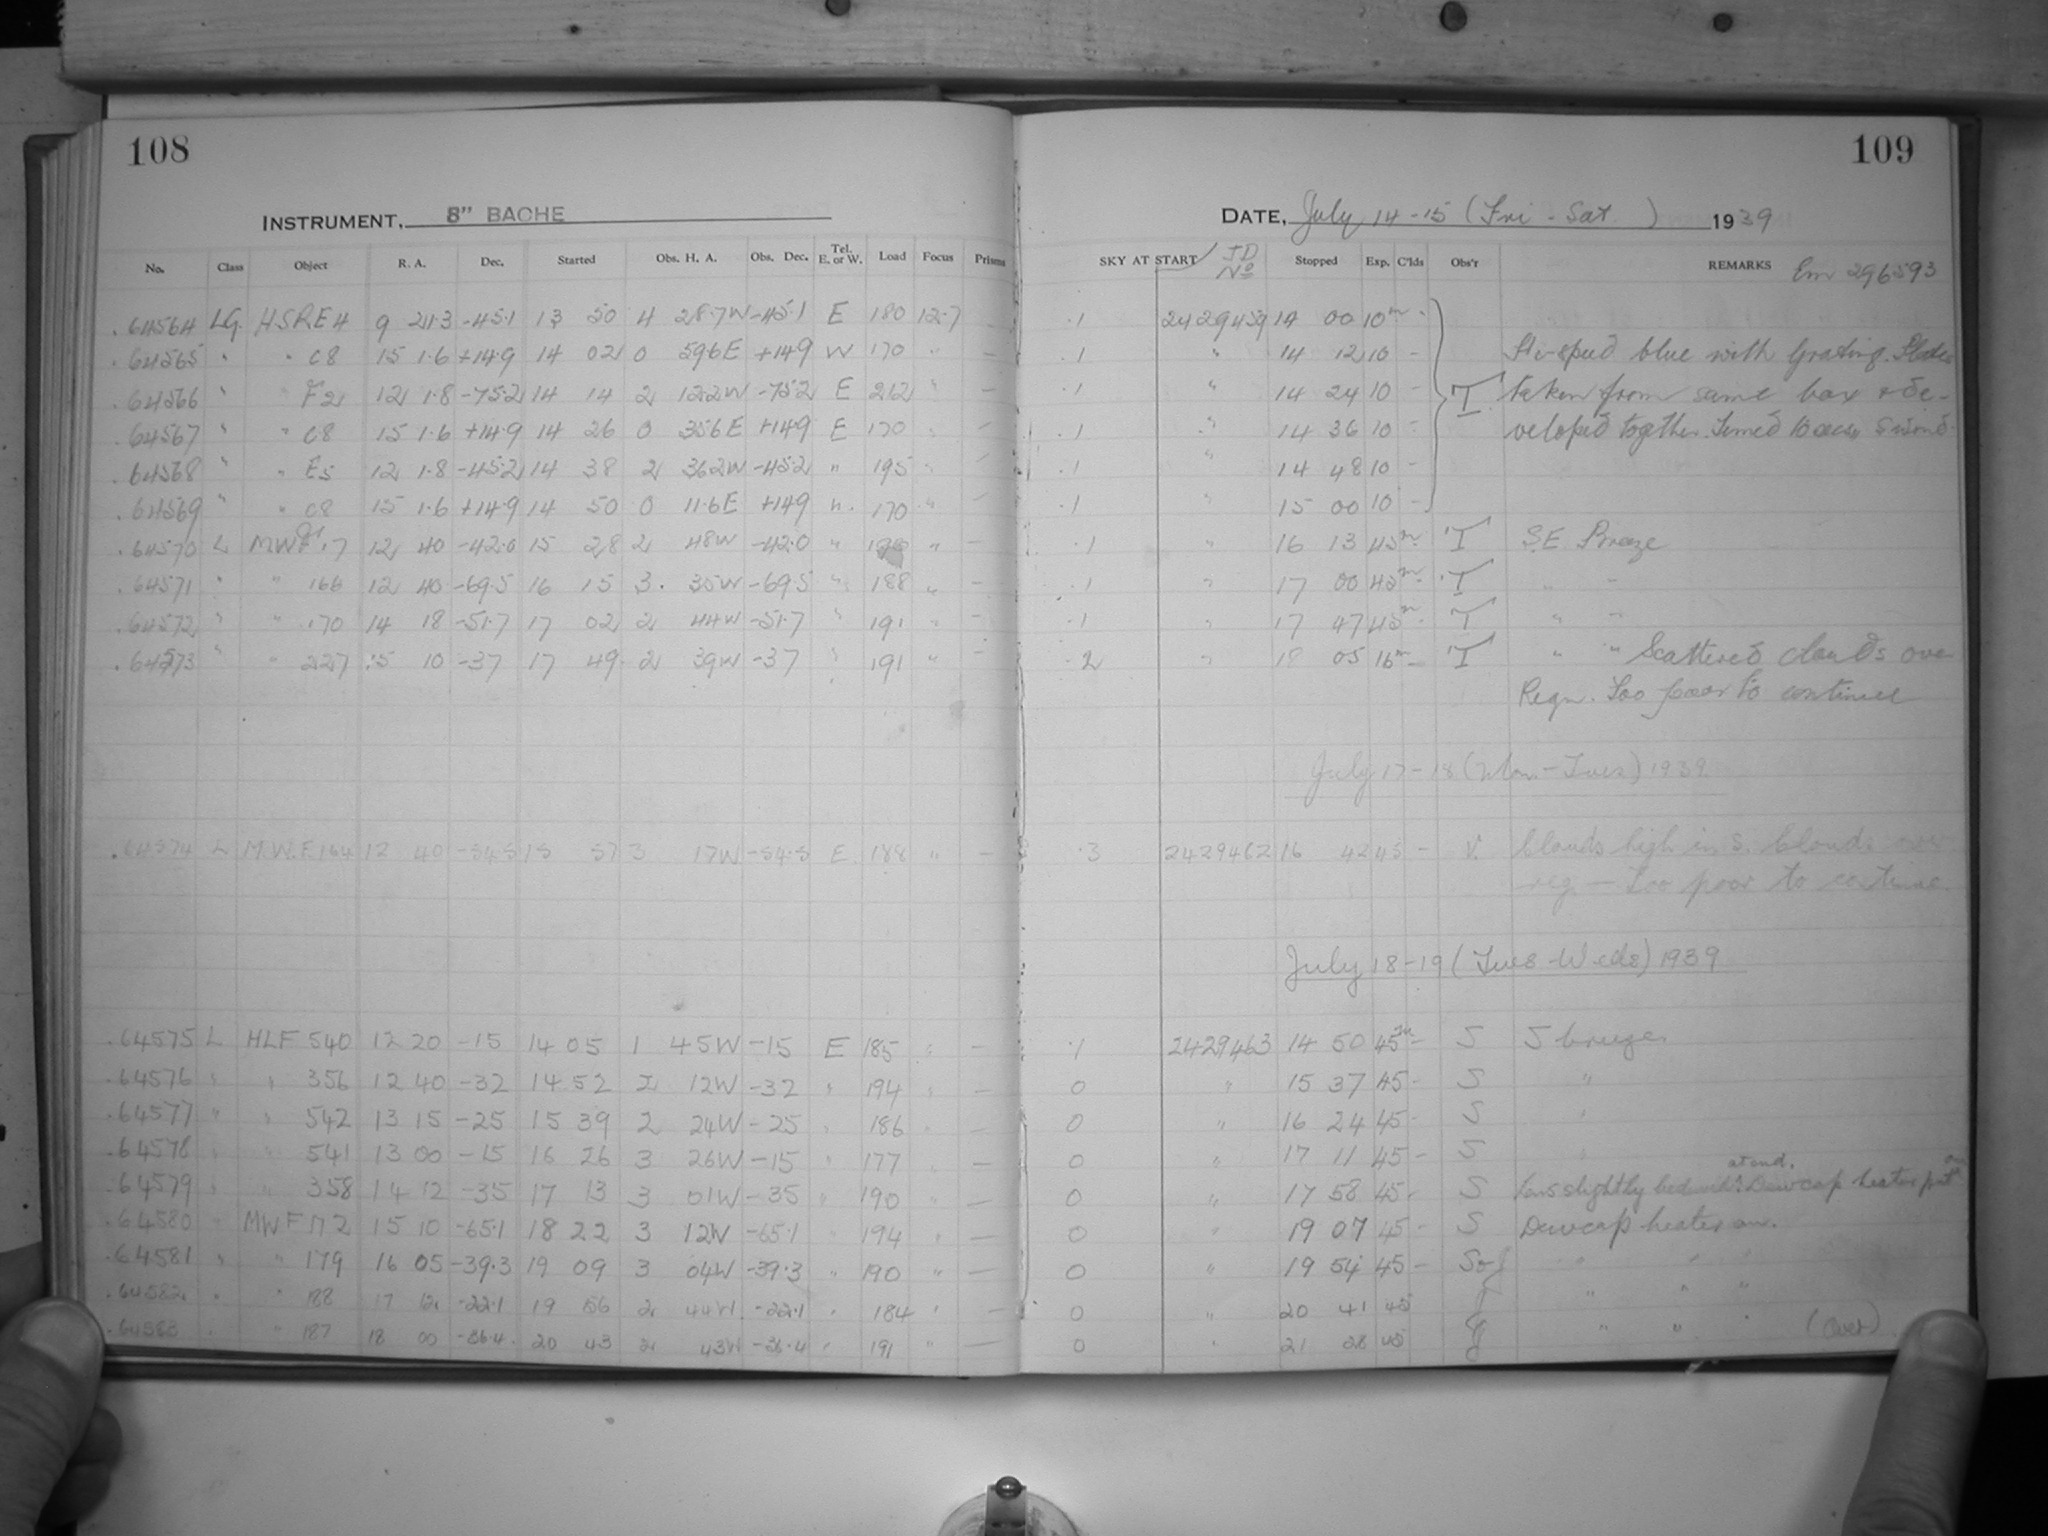 108
109
INSTRUMENT, 8" BACHE
DATE, July 14-15 (Fri - Sat ) 1939
No. Class Object R. A. Dec. Started Obs. H. A. Obs. Dec. Tel. E. or W. Load Focus Prisms SKY AT START JD No Stopped Exp. C'lds Obs'r REMARKS Em 296593
.64564 LG. HSRE4 9 24.3 -45.1 13 50 4 28.7W -45.1 E 180 12.7 .1 2429459 14 00 10m -
.64565 " " C8 15 1.6 +14.9 14 02 0 59.6E +14.9 W 170 " - .1 " 14 12 10 - blue with Grating. Plates
.64566 " " F2 12 1.8 -75.2 14 14 2 12.2W -75.2 E 212 " - .1 " 14 24 10 - T taken from same box & de-
.64567 " " C8 15 1.6 +14.9 14 26 0 35.6E +14.9 E 170 " - .1 " 14 36 10 - veloped together.
.64568 " " E5 12 1.8 -45.2 14 38 2 36.2W -45.2 " 195 " - .1 " 14 48 10 -
.64569 " " C8 15 1.6 +14.9 14 50 0 11.6E +14.9 " 170 " - .1 " 15 00 10 -
.64570 L MWF 12 40 -42.0 15 28 2 48W -42.0 " " - .1 " 16 13 45m - T SE Breeze
.64571 " " 166 12 40 -69.5 16 15 3 35W -69.5 " 188 " - .1 " 17 00 45m - T " "
.64572 " " 170 14 18 -51.7 17 02 2 44W -51.7 " 191 " - .1 " 17 47 45m - T " "
.64573 " " 227 15 10 -37 17 49 2 39W -37 " 191 " - .2 " 18 05 16m - T " " Scattered clouds over
Regn. Too poor to continue
July 17-18 (Mon.-Tues) 1939
.64574 L M.W.F.164 12 40 -54.5 15 57 3 17W -54.5 E 188 " - .3 2429462 16 42 45 - V. Clouds high in S. Clouds over
reg. - Too poor to continue.
July 18-19 (Tues-Weds) 1939
.64575 L HLF 540 12 20 -15 14 05 1 45W -15 E 185 " - .1 2429463 14 50 45m - S S breeze.
.64576 " " 356 12 40 -32 14 52 2 12W -32 " 194 " - 0 " 15 37 45 - S "
.64577 " " 542 13 15 -25 15 39 2 24W -25 " 186 " - 0 " 16 24 45 - S "
.64578 " " 541 13 00 -15 16 26 3 26W -15 " 177 " - 0 " 17 11 45 - S "
.64579 " " 358 14 12 -35 17 13 3 01W -35 " 190 " - 0 " 17 58 45 - S Lens slightly bedewed at end. Dewcap heater put on
.64580 " MWF 172 15 10 -65.1 18 22 3 12W -65.1 " 194 " - 0 " 19 07 45 - S Dewcap heater on.
.64581 " " 179 16 05 -39.3 19 09 3 04W -39.3 " 190 " - 0 " 19 54 45 - " " "
.64582 " " 188 17 12 -22.1 19 56 2 44W -22.1 " 184 " - 0 " 20 41 45 " " "
.64583 " " 187 18 00 -36.4 20 43 2 43W -36.4 " 191 " - 0 " 21 28 45 " " " (Over)